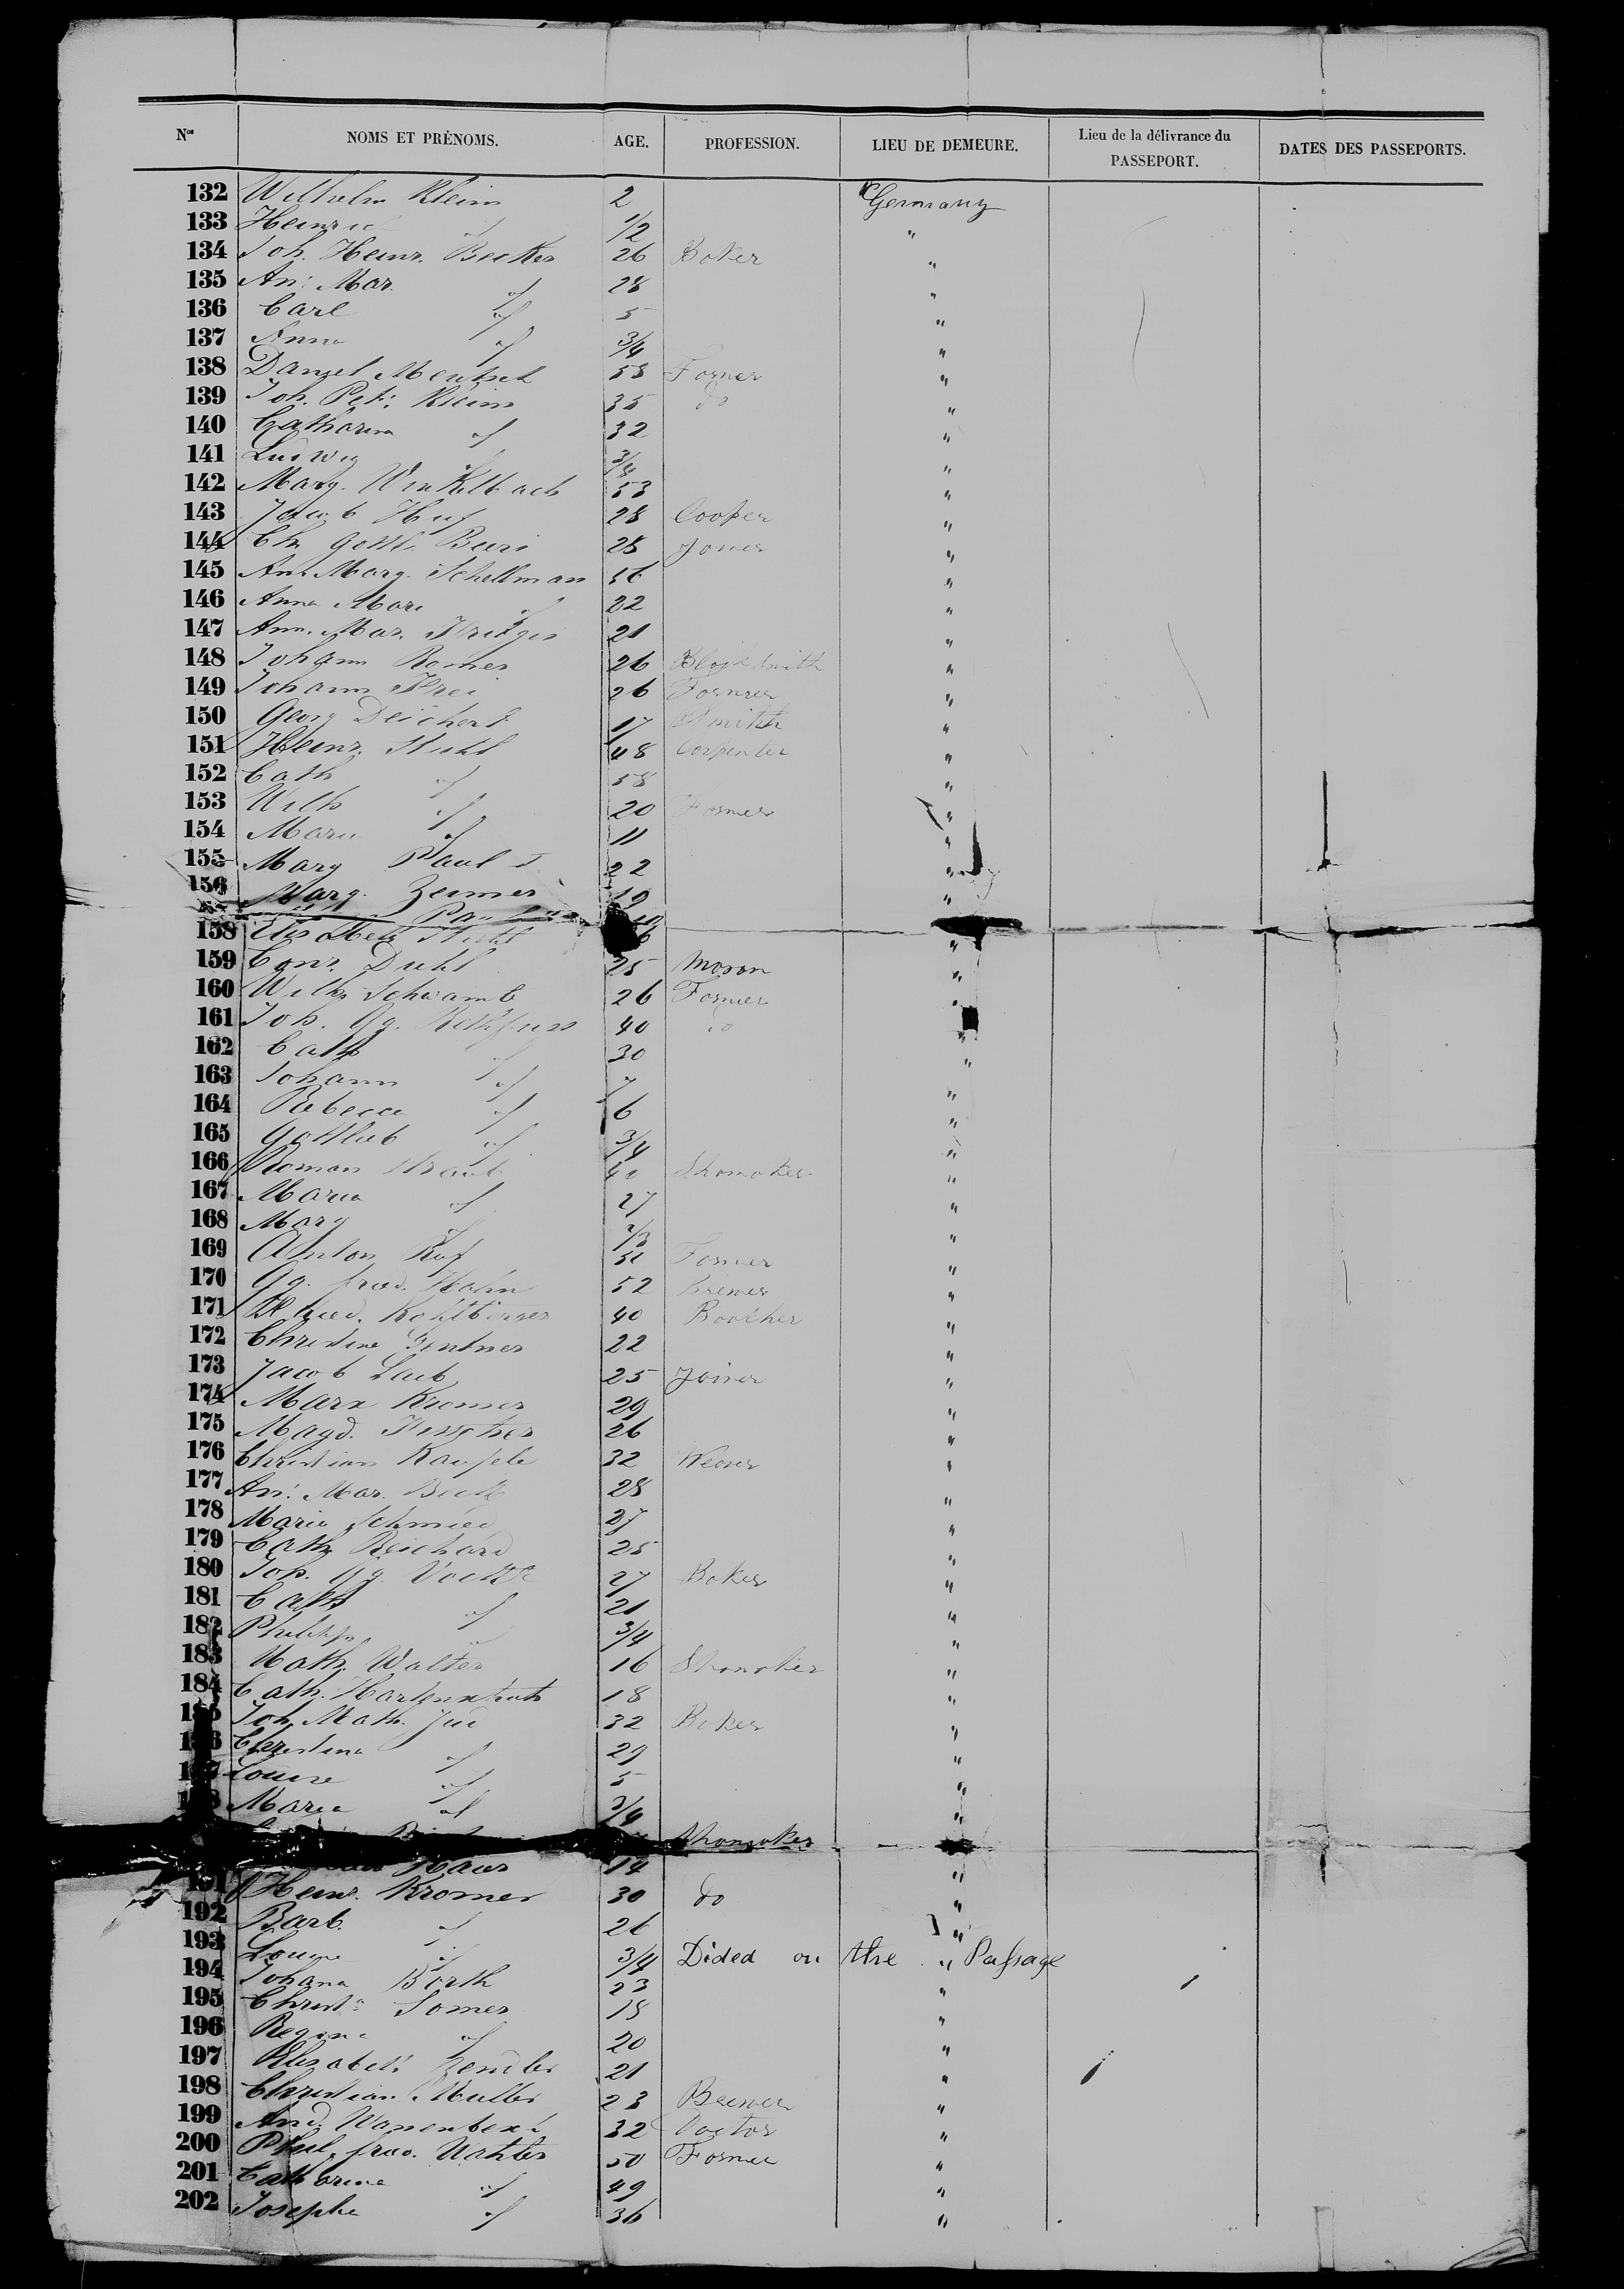 Nos NOMS ET PRÉNOMS. AGE. PROFESSION. LIEU DE DEMEURE. Lieu de la délivrance du PASSEPORT. DATES DES PASSEPORTS.
132 Wilhelm Klein 2 Germany
133 Heinric " 1/2 "
134 Joh. Heinr. Becker 26 Baker "
135 An: Mar. " 28 "
136 Carl " 5 "
137 Anna " 3/4 "
138 Daniel 58 Farmer "
139 Joh. Pet: Klein 35 do "
140 Catharina " 32 "
141 Ludwig " 3/4 "
142 Marg. Winkelbach 53 "
143 Jacob Huf 28 Cooper "
144 Chr. Gottl. 28 "
145 An. Marg. Schellman 56 "
146 Anna Mari " 22 "
147 Ann. Mar. 21 "
148 Johann Romer 26 Blacksmith "
149 Johann Frei 26 Farmer "
150 Georg Deichert 17 Smith "
151 Heinr. Stuhl 48 Carpenter "
152 Cath " 58 "
153 Wilh " 20 Farmer "
154 Maria " 11 "
155 Marg Paul 22 "
156 Marg. Zeimer 19 "
158 Elisabeth "
159 Conr. Diehl 25 Mason "
160 Wilh. Schwamb 26 Farmer "
161 Joh. Gg. Rothfuss 40 do "
162 Cath " 30 "
163 Johann " 7 "
164 Rebecca " 6 "
165 Gottlieb " 3/4 "
166 Roman Straub 40 Shomaker "
167 Maria " 27 "
168 Marg " "
169 Anton Ruf Farmer "
170 Gg. fried. Hahn 52 Brewer "
171 40 Boocher "
172 Christine Gentner 22 "
173 Jacob Laib 25 Joiner "
174 Marx Kromer 29 "
175 Magd. Fisscher 26 "
176 Christian Kaupele 32 Weaver "
177 An: Mar. Beck 28 "
178 Maria Schmied 27 "
179 Cath Reichard 25 "
180 Joh. Gg. 27 Baker "
181 Cath " 21 "
182 Philipp " 3/4 "
183 Math. Walter 16 Shomaker "
184 Cath. 18 "
Joh. Math. Jud 32 Baker "
Christina " 29 "
Louise " 5 "
Maria " 3/4 "
Shomaker "
14 "
191 Heinr. Kromer 30 do "
192 Barb. " 26 "
193 Louise " 3/4 Dided on the " Passage
194 Johana Barth 23 "
195 Christ: Somer 18 "
196 Regina " 20 "
197 Elisabeth 21 "
198 Christian Muller 23 Brewer "
199 And. 32 Doctor "
200 Phil. fried. 50 Farmer "
201 Catharina " 49 "
202 Josepha " 36 "